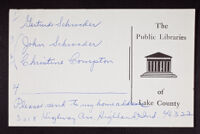 Gertrude Schroeder
John Schroeder
Christine Compton
Please send to my home address
Highway Ave. Highland Ind. 46322
The
Public Libraries
of
Lake County